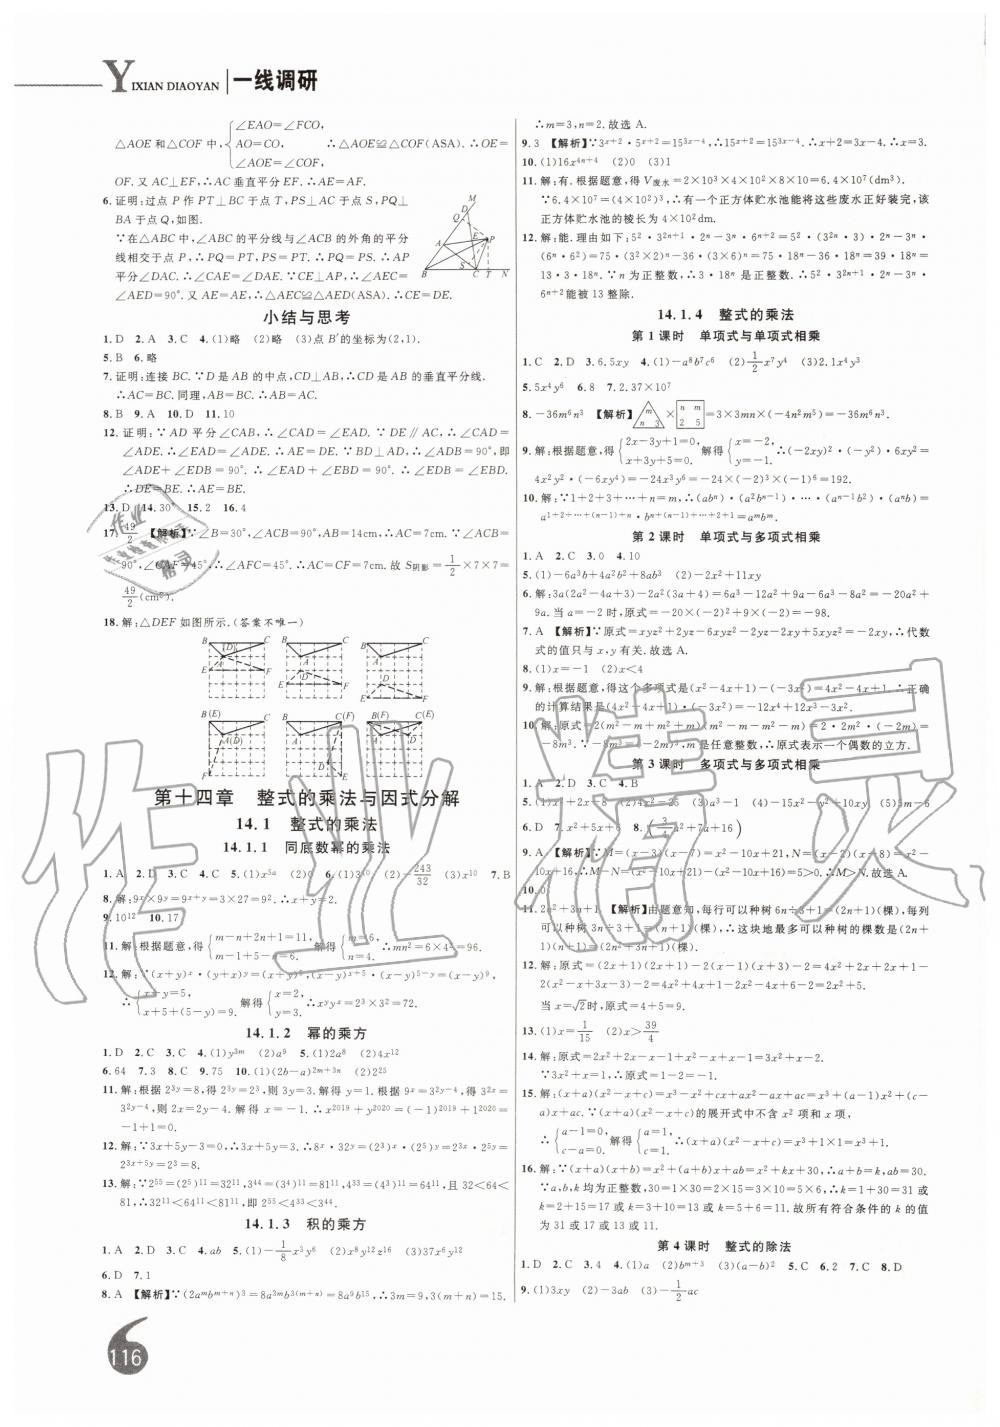 YIXIAN DIAOYAN 一线调研
△AOE和△COF中,{∠EAO=∠FCO, AO=CO, ∠AOE=∠COF, ∴△AOE≌△COF(ASA).∴OE=
OF.又AC⊥EF,∴AC垂直平分EF.∴AE=AF.
6.证明:过点P作PT⊥BC于点T,PS⊥AC于点S,PQ⊥
BA于点Q,如图.
∵在△ABC中,∠ABC的平分线与∠ACB的外角的平分
线相交于点P,∴PQ=PT,PS=PT.∴PQ=PS.∴AP
平分∠DAC.∴∠CAE=∠DAE.∵CE⊥AP,∴∠AEC=
∠AED=90°.又AE=AE,∴△AEC≌△AED(ASA).∴CE=DE.
M D Q E P A S B C T N
小结与思考
1.D 2.A 3.C 4.(1)略 (2)略 (3)点B′的坐标为(2,1).
5.B 6.略
7.证明:连接BC.∵D是AB的中点,CD⊥AB,∴CD是AB的垂直平分线.
∴AC=BC.同理,AB=BC.∴AB=AC.
8.B 9.A 10.D 11.10
12.证明:∵AD平分∠CAB,∴∠CAD=∠EAD.∵DE∥AC,∴∠CAD=
∠ADE.∴∠EAD=∠ADE.∴AE=DE.∵BD⊥AD,∴∠ADB=90°,即
∠ADE+∠EDB=90°.∴∠EAD+∠EBD=90°.∴∠EDB=∠EBD.
∴DE=BE.∴AE=BE.
13.D 14.30° 15.2 16.4
17.49/2 【解析】∵∠B=30°,∠ACB=90°,AB=14cm,∴AC=7cm.∵∠ACB=
90°,∠CAF=45°,∴∠AFC=45°.∴AC=CF=7cm.故S阴影=1/2×7×7=
49/2(cm²).
18.解:△DEF如图所示.(答案不唯一)
B C (D) A E F B C A D E F B C A D E F
B(E) C A(D) F B C(F) A(D) E B(F) C(E) A D
第十四章 整式的乘法与因式分解
14.1 整式的乘法
14.1.1 同底数幂的乘法
1.A 2.D 3.C 4.C 5.(1)x⁵ᵃ (2)0 6.(1)3¹⁰ (2)-243/32 (3)x¹⁰ 7.B
8.解:9ˣ×9ʸ=9ˣ⁺ʸ=3×27=9².∴x+y=2.
9.10¹² 10.17
11.解:根据题意,得{m-n+2n+1=11, m-1+5-n=6. 解得{m=6, n=4. ∴mn²=6×4²=96.
12.解:∵(x+y)ˣ·(y+x)ʸ=(x+y)⁵,(x-y)ˣ⁺⁵·(x-y)⁵⁻ʸ=(x-y)⁹,
∴{x+y=5, x+5+(5-y)=9. 解得{x=2, y=3. ∴xʸyˣ=2³×3²=72.
14.1.2 幂的乘方
1.D 2.C 3.C 4.(1)y³ᵐ (2)a⁹ 5.(1)2a⁸ (2)4x¹²
6.64 7.3 8.C 9.75 10.(1)(2b-a)²ᵐ⁺³ⁿ (2)225
11.解:根据2³ʸ=8,得2³ʸ=2³,则3y=3.解得y=1.根据9ˣ=3²ʸ⁻⁴,得3²ˣ=
3²ʸ⁻⁴,则2x=2y-4.解得x=-1.∴x²⁰¹⁹+y²⁰²⁰=(-1)²⁰¹⁹+1²⁰²⁰=
-1+1=0.
12.解:∵3x+5y-3=0,∴3x+5y=3.∴8ˣ·32ʸ=(2³)ˣ·(2⁵)ʸ=2³ˣ·2⁵ʸ=
2³ˣ⁺⁵ʸ=2³=8.
13.解:∵2⁵⁵=(2⁵)¹¹=32¹¹,3⁴⁴=(3⁴)¹¹=81¹¹,4³³=(4³)¹¹=64¹¹,且32<64<
81,∴32¹¹<64¹¹<81¹¹,即2⁵⁵<4³³<3⁴⁴.
14.1.3 积的乘方
1.A 2.D 3.C 4.ab 5.(1)-1/8x³y⁶ (2)x⁸y¹²z¹⁶ (3)37x⁶y¹²
6.D 7.1
8.A 【解析】∵(2aᵐbᵐ⁺ⁿ)³=8a³ᵐb³⁽ᵐ⁺ⁿ⁾=8a⁹b¹⁵,∴3m=9,3(m+n)=15.
116
∴m=3,n=2.故选A.
9.3 【解析】∵3ˣ⁺²·5ˣ⁺²=15³ˣ⁻⁴,∴15ˣ⁺²=15³ˣ⁻⁴.∴x+2=3x-4.∴x=3.
10.(1)16x⁴ⁿ⁺⁴ (2)0 (3)1
11.解:有.根据题意,得V废水=2×10³×4×10²×8×10=6.4×10⁷(dm³).
∵6.4×10⁷=(4×10²)³,∴有一个正方体贮水池能将这些废水正好装完,该
正方体贮水池的棱长为4×10²dm.
12.解:能.理由如下:5²·3²ⁿ⁺¹·2ⁿ-3ⁿ·6ⁿ⁺²=5²·(3²ⁿ·3)·2ⁿ-3ⁿ·
(6ⁿ·6²)=75·(3²×2)ⁿ-36·(3×6)ⁿ=75·18ⁿ-36·18ⁿ=39·18ⁿ=
13·3·18ⁿ.∵n为正整数,∴3·18ⁿ是正整数.∴5²·3²ⁿ⁺¹·2ⁿ-3ⁿ·
6ⁿ⁺²能被13整除.
14.1.4 整式的乘法
第1课时 单项式与单项式相乘
1.C 2.D 3.6.5xy 4.(1)-a⁸b⁷c⁶ (2)1/2x⁷y⁴ (3)2.1x⁴y³
5.5x⁴y⁶ 6.8 7.2.37×10⁷
8.-36m⁶n³ 【解析】m n 3 × n m 2 5 =3×3mn×(-4n²m⁵)=-36m⁶n³.
9.解:根据题意,得{2x-3y+1=0, x+3y+5=0. 解得{x=-2, y=-1. ∴(-2xy)²·(-y²)·6xy²=
4x²y²·(-6xy⁴)=-24x³y⁶=-24×(-2)³×(-1)⁶=192.
10.解:∵1+2+3+…+n=m,∴(abⁿ)·(a²bⁿ⁻¹)·…·(aⁿ⁻¹b²)·(aⁿb)=
a¹⁺²⁺…⁺⁽ⁿ⁻¹⁾⁺ⁿbⁿ⁺⁽ⁿ⁻¹⁾⁺…⁺²⁺¹=aᵐbᵐ.
第2课时 单项式与多项式相乘
1.A 2.C 3.0 4.10
5.(1)-6a³b+4a²b²+8ab³ (2)-2x²+x-1
6.解:3a(2a²-4a+3)-2a²(3a+4)=6a³-12a²+9a-6a³-8a²=-20a²+
9a.当a=-2时,原式=-20×(-2)²+9×(-2)=-98.
7.A 【解析】∵原式=xyz²+2yz-6xyz²-2yz-2xy+5xyz²=-2xy,∴代数
式的值只与x,y有关.故选A.
8.(1)x=-1 (2)x<4
9.解:根据题意,得这个多项式是(x²-4x+1)-(-3x²)=4x²-4x+1.∴正确
的计算结果是(4x²-4x+1)·(-3x²)=-12x⁴+12x³-3x².
10.解:原式=2(m²-m+m²+m)(m²-m-m²-m)=2·2m²·(-2m)=
-8m³.∵-8m³=(-2m)³,m是任意整数,∴原式表示一个偶数的立方.
第3课时 多项式与多项式相乘
1.A 2.D 3.C 4.B
5.(1)x²+2x-8 (2)4x²-25 (3)a³-1 (4)-15x²-y²+10xy (5)3m-6
6.D 7.x²+5x+6 8.(3/4a²+7a+16)
9.A 【解析】∵M=(x-3)(x-7)=x²-10x+21,N=(x-2)(x-8)=x²-
10x+16,∴M-N=(x²-10x+21)-(x²-10x+16)=5>0.∴M>N.故选A.
10.0
11.2n²+3n+1 【解析】由题意知,每行可以种树6n÷3+1=(2n+1)(棵),每列
可以种树3n÷3+1=(n+1)(棵),∴这块地最多可以种树的棵数是(2n+
1)(n+1)=(2n²+3n+1)(棵).
12.解:原式=(2x+1)(2x+1)-2(x-1)(x+3)-2=4x²+2x+2x+1-
2(x²-x+3x-3)-2=4x²+4x+1-2x²-4x+6-2=2x²+5.
当x=√2时,原式=4+5=9.
13.(1)x=1/15 (2)x>39/4
14.解:原式=2x²+2x-x-1+x²+x-x+1=3x²+2-x.
∵3x²+x=1,∴原式=3x²+x=1.
15.解:(x+a)(x²-x+c)=x³-x²+cx+ax²-ax+ac=x³+(a-1)x²+(c-
a)x+ac.∵(x+a)(x²-x+c)的展开式中不含x²项和x项,
∴{a-1=0, c-a=0. 解得{a=1, c=1. ∴(x+a)(x²-x+c)=(x+1)(x²-x+1)=x³+1.
16.解:∵(x+a)(x+b)=x²+(a+b)x+ab=x²+kx+30,∴a+b=k,ab=30.
∵a,b,k均为正整数,30=1×30=2×15=3×10=5×6,∴k=1+30=31或
k=2+15=17或k=3+10=13或k=5+6=11.故所有符合条件的k的值
为31或17或13或11.
第4课时 整式的除法
1.D 2.C 3.4 4.(1)a (2)bᵐ⁺³ (3)(a-b)² 5.C 6.2 7.C 8.D
9.(1)3xy (2)-3ab (3)-1/2ac
作业精灵